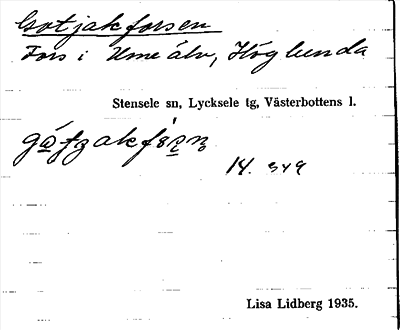 Gotjakforsen
Fors i Ume älv, Höglunda
Stensele sn, Lycksele tg, Västerbottens l.
14. 349
Lisa Lidberg 1935.